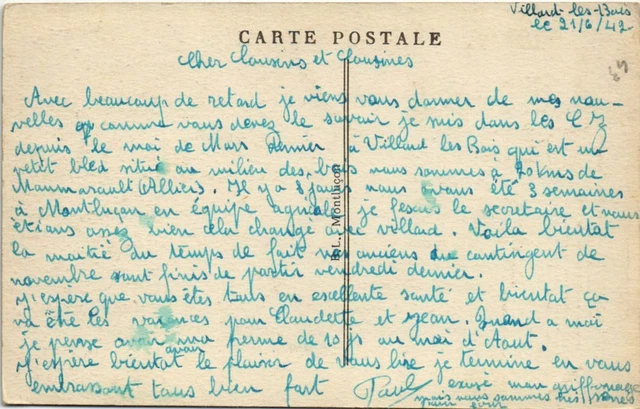 Villard-les-Bois
le 21/6/42
CARTE POSTALE
Cher Cousins et Cousines
Avec beaucoup de retard je viens vous donner de mes nou-
velles comme vous devez le savoir je suis dans les C J
depuis le moi de Mars dernier à Villard les Bois qui est un
petit bled situé au milieu des bois nous sommes à 20 kms de
(Allier). Il y a 8 jours nous avons été 3 semaines
à Montluçon en équipe agricole je fesais le secretaire et nous
étions assez bien celu change de villard. Voila bientot
la moitié du temps de fait nos anciens du contingent de
novembre sont finis de partir vendredi dernier.
J'espere que vous êtes tous en excellente santé et bientot ça
va être les vacances pour Claudette et Jean. Quand a moi
je pense avoir ma perme de 10 js au moi d'Aout.
J'espère bientot avoir le plaisir de vous lire je termine en vous
embrassant tous bien fort Paul excusé mon griffonage
mais nous sommes très
pour
Montluçon